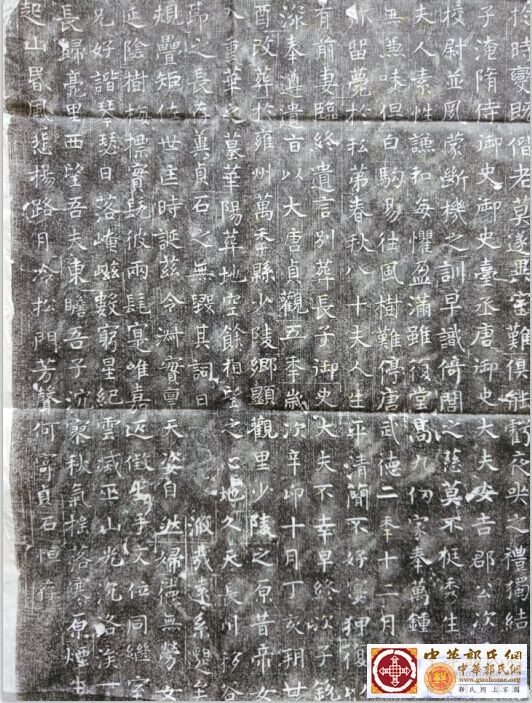 偕老莫遂異室難俱之禮獨結
子淹隋侍御史御史臺丞唐御史大夫安吉郡公次
校尉並夙蒙斷機之訓早識倚閭之蔭莫不挺秀生
夫人素性謙和每懼盈滿雖復堂高九仞家奉萬鍾
無味但白駒易往風樹難停唐武德二年十二月
留薨於私第春秋八十夫人生平清簡不好宴狎復以
有前妻臨終遺言別葬長子御史大夫不幸早終次子
深奉遵遺旨以大唐貞觀五年歲次辛卯十月丁亥朔廿
酉改葬於雍州萬年縣少陵鄉顯觀里少陵之原昔帝女
重華之墓華陽葬地空餘相望之心地久天長川移谷
之長存冀貞石之無毀其詞曰 淑哉遠系
規疊矩佐世匡時誕茲令淑實稟天姿自然婦德無勞女
延陰樹梅摽實既彼兩髦寔唯嘉匹徵生手文位同
兄好諧琴瑟日落崦嵫數窮星紀雲滅巫山光沉洛涘
長歸蒿里西望吾夫東瞻吾子沉寥秋氣搖落寒原煙生
起山昏風悲楊路月冷松門芳聲何寄貞石恒存
中華郭氏網
中華郭氏網
www.guohome.org
郭氏網上家園